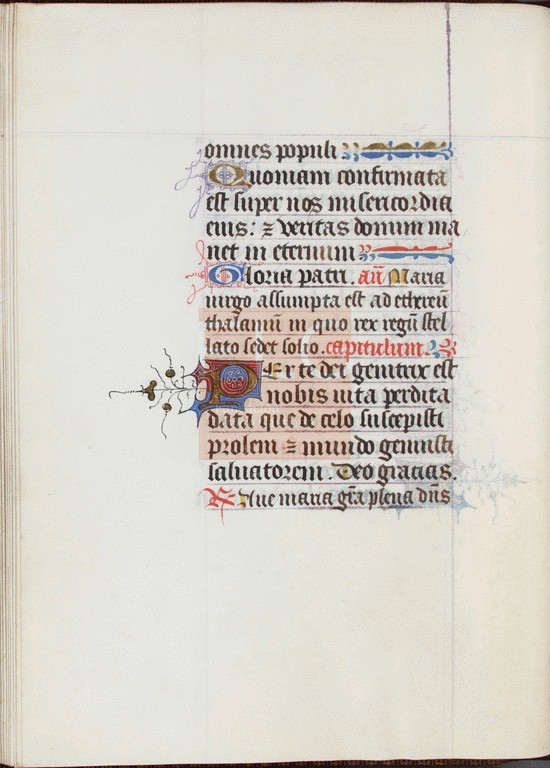 omnes populi
Quoniam confirmata
est super nos misericordia
eius: ⁊ veritas domini ma
net in eternum
Gloria patri. añ Maria
uirgo assumpta est ad ethereū
thalamū in quo rex regū stel
lato sedet solio. capitulum.
Per te dei genitrix est
nobis uita perdita
data que de celo suscepisti
prolem ⁊ mundo genuisti
saluatorem. Deo gracias.
℟. Aue maria gr̄a plena dn̄s